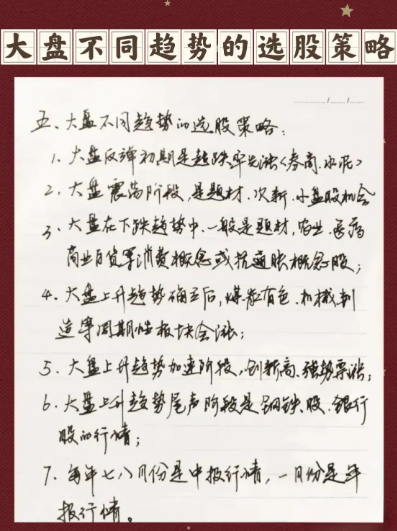 大盘不同趋势的选股策略
五、大盘不同趋势的选股策略：
1、大盘反弹初期是超跌率先涨〈券商、水泥〉
2、大盘震荡阶段，是题材、次新、小盘股机会
3、大盘在下跌趋势中，一般是题材，农业、医药
商业百货等消费概念或抗通胀概念股；
4、大盘上升趋势确立后，煤炭有色、机械制
造等周期性板块会涨；
5、大盘上升趋势加速阶段，创新高、强势票涨；
6、大盘上升趋势尾声阶段是钢铁股、银行
股的行情；
7、每年七八月份是中报行情，一月份是年
报行情。